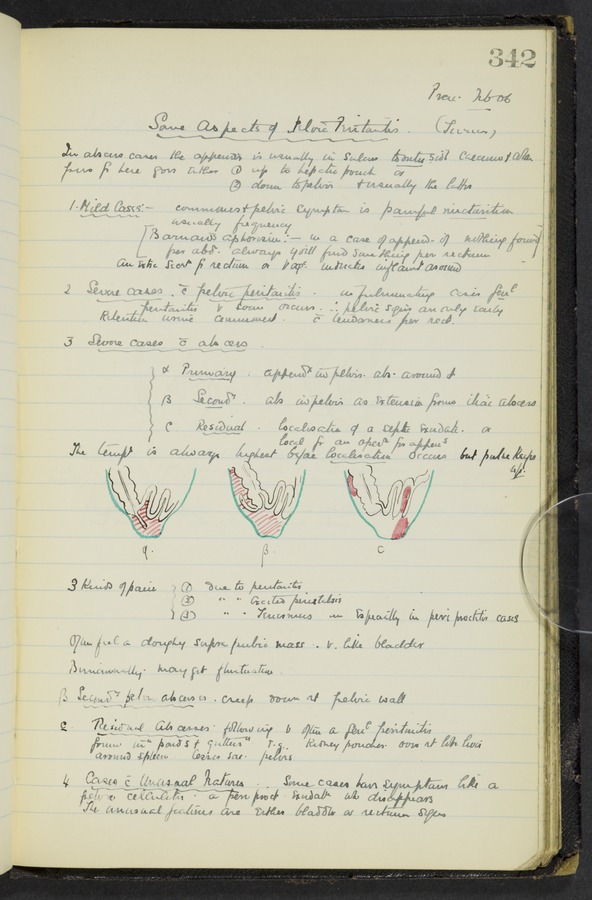 342
Prac. Feb 06
Some Aspects of Pelvic Peritonitis.
In abscess cases the appendix is usually in Sulcus
② down to pelvis & usually the latter
1. Mild Cases:- commonest pelvic symptom is painful micturition
usually frequency
Barnard's aphorism:- in a case of append. if nothing found
per abd. always you'll find something per rectum
2 Severe cases. c̄ pelvic peritonitis. in fulminating cases
peritonitis occurs. ∴ pelvic signs are only early
Retention urine commonest. c̄ tenderness per rect.
3 Severe cases c̄ abscess.
α Primary. append. in pelvis. abs. around it
β Second. abs in pelvis as extension from iliac abscess
c Residual. localisation of a septic exudate. or
The temp. is always highest before localisation occurs but pulse keeps
up.
α.
β.
c
3 Kinds of pain ① due to peritonitis
② " " excited peristalsis
③ " " Tenesmus especially in peri proctitis cases
Often feel a doughy supra pubic mass. v. like bladder
Bimanually may get fluctuation
β Second. pelvic abscess. creep down rt pelvic wall
c. Residual Abscesses: following often a gen. peritonitis
form in "pools & gutters" e.g. Kidney pouches over rt lobe liver
around spleen lesser sac. pelvis
4 Cases c̄ Unusual Features. Some cases have symptoms like a
pelvic cellulitis. a peri proct. exudate disappears
The unusual features are either bladder or rectum signs